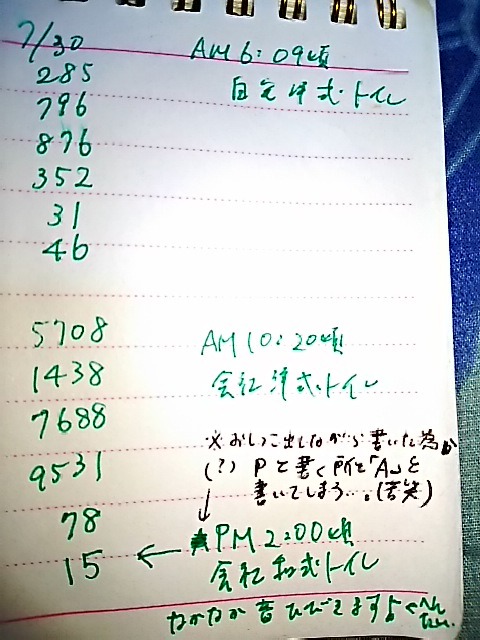 7/30 AM6:09頃
285 自宅洋式トイレ
796
876
352
31
46
5708 AM10:20頃
1438 会社洋式トイレ
7688 ※おしっこ出しながら書いた為か
9531 (?) Pと書く所を「A」を
書いてしまう…。(苦笑)
78 ↓
15 ← PM2:00頃
会社和式トイレ
なかなか音ひびきますよ